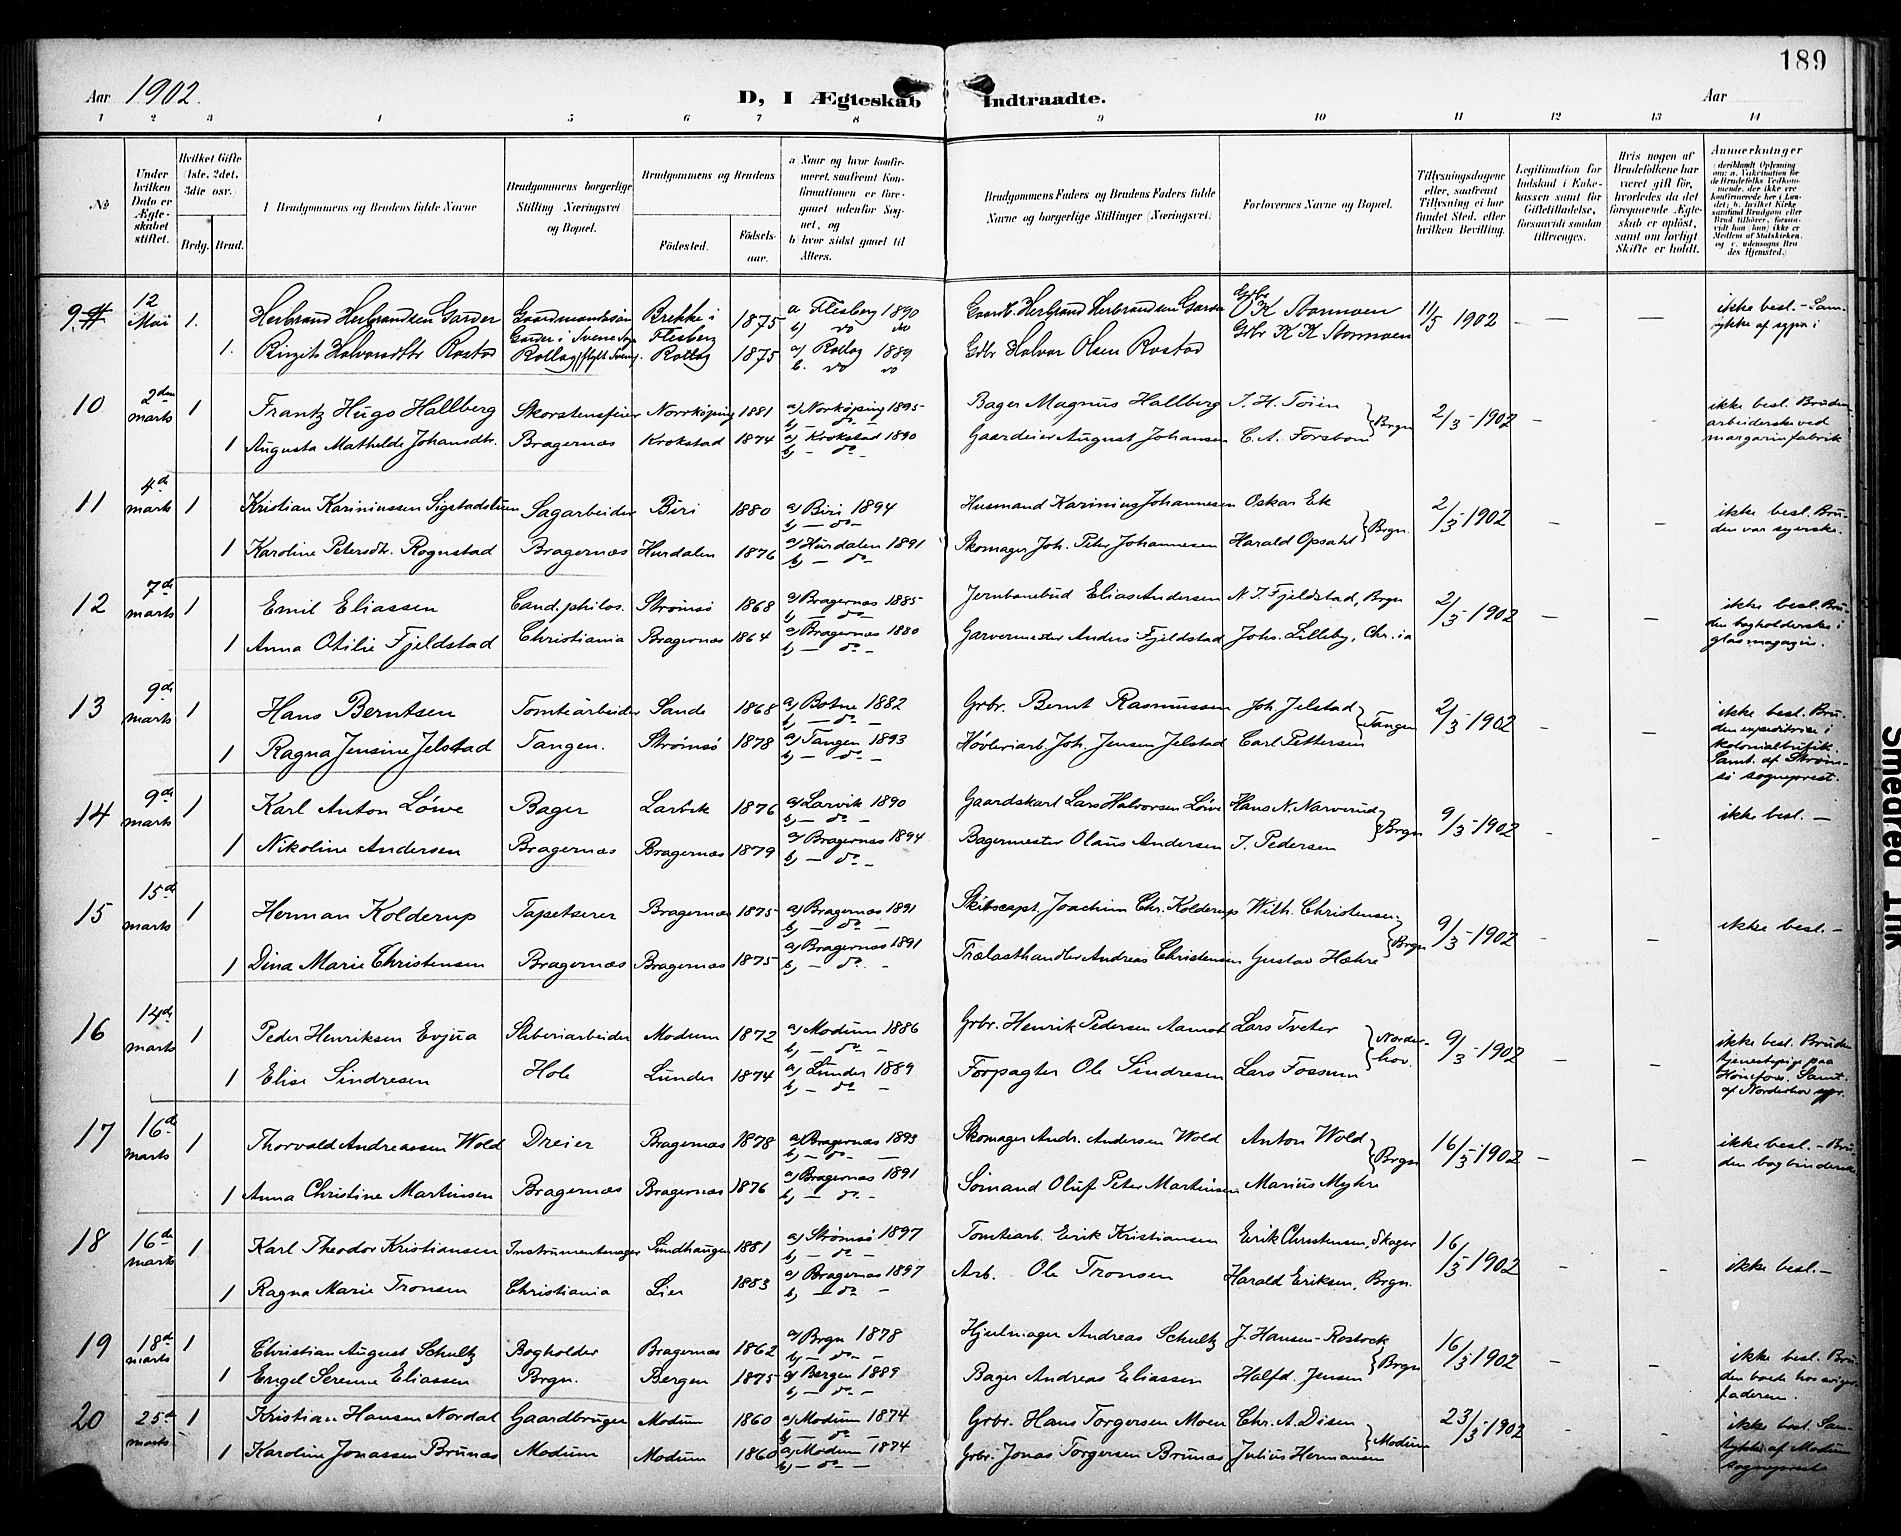 189
Aar 1902.
D, I Ægteskab Indtraadte.
Aar
1 2 3 4 5 6 7 8 9 10 11 12 13 14
№
Under hvilken Dato er Ægteskabet stiftet.
Hvilket Gifte (1ste. 2det. 3die osv.)
Brdg. Brud.
Brudgommens og Brudens fulde Navne
Brudgommens borgerlige Stilling (Næringsvei og Bopæl.
Brudgommens og Brudens
Fødested.
Fødselsaar.
a Naar og hvor konfirmeret, saafremt Konfirmationen er foregaaet udenfor Sognet, og
b hvor sidst gaaet til Alters.
Brudgommens Faders og Brudens Faders fulde Navne og borgerlige Stillinger (Næringsvei.
Forlovernes Navne og Bopæl.
Tillysningsdagene eller, saafremt Tillysning ei har fundet Sted, efter hvilken Bevilling.
Legitimation for Indskud i Enkekassen samt for Giftetilladelse, forsaavidt saadan tiltrænges.
Hvis nogen af Brudefolkene har været gift før, hvorledes da det foregaaende Ægteskab er opløst, samt om lovligt Skifte er holdt.
Anmærkninger
9 12 Mai 1. Herbrand Herbrandsen Garder Gaardmandssøn Brekke i Flesberg 1875 a Flesberg 1890 b) do do Gaardb. Herbrand Herbrandsen Garder K Stormoen 11/5 1902 — — ikke besl. - Sam-
1. Birgit Halvorsdtr Rostad Rollag Rollag 1875 a) Rollag 1889 b. do do Gdbr Halvor Olsen Rostad Grbr K K Stormoen
10 2den marts 1 Frantz Hugo Hallberg Skorstensfeier Norrköping 1881 a) Norköping 1895 b) — do — Bager Magnus Hallberg J. H. Töien } Brgn 2/3 1902 – – ikke besl. Bruden
1 Augusta Mathilde Johansdtr. Bragernæs Krokstad 1874 a) Krokstad 1890 b) — do Gaardeier August Johansen C. A. Forsbom arbeiderske ved margarinfabrik
11 4de marts 1 Kristian Kariniussen Sigstadstuen Sagarbeider Biri 1880 a) Biri 1894 b) — do — Husmand Karinius Johannesen Oskar Ek } Brgn. 2/3 1902 – – ikke besl. Bru-
1 Karoline Petersdtr. Rognstad Bragernæs Hurdalen 1876 a) Hurdalen 1891 b) — do — Skomager Joh. Peter Johannesen Harald Opsahl den var syerske.
12 7de marts 1 Emil Eliassen Cand. philos. Strømsø 1868 a) Bragernæs 1885 b) — do — Jernbanebud Elias Andersen N. J. Fjeldstad, Brgn 2/3 1902 – – ikke besl. Bru-
1 Anna Otilie Fjeldstad Christiania Bragernæs 1864 a) Bragernæs 1880 b) — do — Garvermester Anders Fjeldstad Johs. Lilleby, Chr.ia den bogholderske i glasmagazin.
13 9de marts 1 Hans Berntsen Tomtearbeider Sande 1868 a) Botne 1882 b) — do — Grbr. Bernt Rasmussen Joh. Jelstad } Tangen 2/3 1902 – – ikke besl. Bru-
1 Ragna Jensine Jelstad Tangen. Strømsø 1878 a) Tangen 1893 b) — do — Høvleriarb. Joh. Jensen Jelstad Carl Pettersen den expeditrice i kolonialbutik. Samt. af Strøm- sø sogneprest.
14 9de marts 1 Karl Anton Löwe Bager Larvik 1876 a) Larvik 1890 b) — do — Gaardskarl Lars Halvorsen Löwe Hans N. Narverud } Brgn 9/3 1902 – – ikke besl. —
1 Nikoline Andersen Bragernæs Bragernæs 1879 a) Bragernæs 1894 b) — do — Bagermester Olaus Andersen J. Pedersen
15 15de marts 1 Herman Kolderup Tapetserer Bragernæs 1875 a) Bragernæs 1891 b) — do — Skibscapt. Joachim Chr. Kolderup Wilh. Christensen } Brgn 9/3 1902 – – ikke besl. —
1 Dina Marie Christensen Bragernæs Bragernæs 1875 a) Bragernæs 1891 b) — do. - Trælasthandler Andreas Christensen Gustav Hæhre
16 14de marts 1 Peder Henriksen Evjua Sliberiarbeider Modum 1872 a) Modum 1886 b) — do — Grbr. Henrik Pedersen Aamot Lars Tveter } Norder- hov. 9/3 1902 – – ikke besl. Bruden
1 Elise Sindresen Hole Lunder 1874 a) Lunder 1889 b) — do — Forpagter Ole Sindresen Lars Fossum tjenestepige paa Hønefos. Samt. af Norderhov spr.
17 16de marts 1 Thorvald Andreassen Wold Dreier Bragernæs 1878 a) Bragernæs 1893 b) — do — Skomager Andr. Andersen Wold Anton Wold } Brgn 16/3 1902 – – ikke besl. - Bru-
1 Anna Christine Martinsen Bragernæs Bragernæs 1876 a) Bragernæs 1891 b) — do - Sømand Oluf Peter Martinsen Marius Myhre den bogbinderske
18 16de marts 1 Karl Theodor Kristiansen Instrumentmager Sundhaugen 1881 a) Strømsø 1897 b) — do — Tomtearb. Erik Kristiansen Erik Christensen, Skoger 16/3 1902 – – ikke besl. —
1 Ragna Marie Tronsen Christiania Lier 1883 a) Bragernæs 1897 b) — do — Arb. Ole Tronsen Harald Eriksen, Brgn.
19 18de marts 1 Christian August Schultz Bogholder Bragernæs 1862 a) Brgn 1878 b) — do — Hjulmager Andreas Schultz J. Hansen-Rostock } Brgn 16/3 1902 – – ikke besl. Bru-
1 Engel Serenne Eliassen Brgn. Bergen 1875 a) Bergen 1889 b) — do — Bager Andreas Eliassen Halfd. Jensen den boede hos sviger- faderen.
20 25de marts 1 Kristian Hansen Nordal Gaardbruger Modum 1860 a) Modum 1874 b) — do — Grbr. Hans Torgersen Moen Chr. A. Disen } Modum 23/3 1902 – – ikke besl. Sam-
1 Karoline Jonassen Brunæs Modum Modum 1860 a) Modum 1874 b) — do — Grbr. Jonas Torgersen Brunæs Julius Hermansen tykke af Modum sogneprest
Smedrød Trik